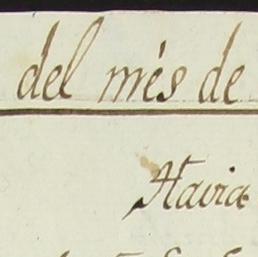 del més de
Havia